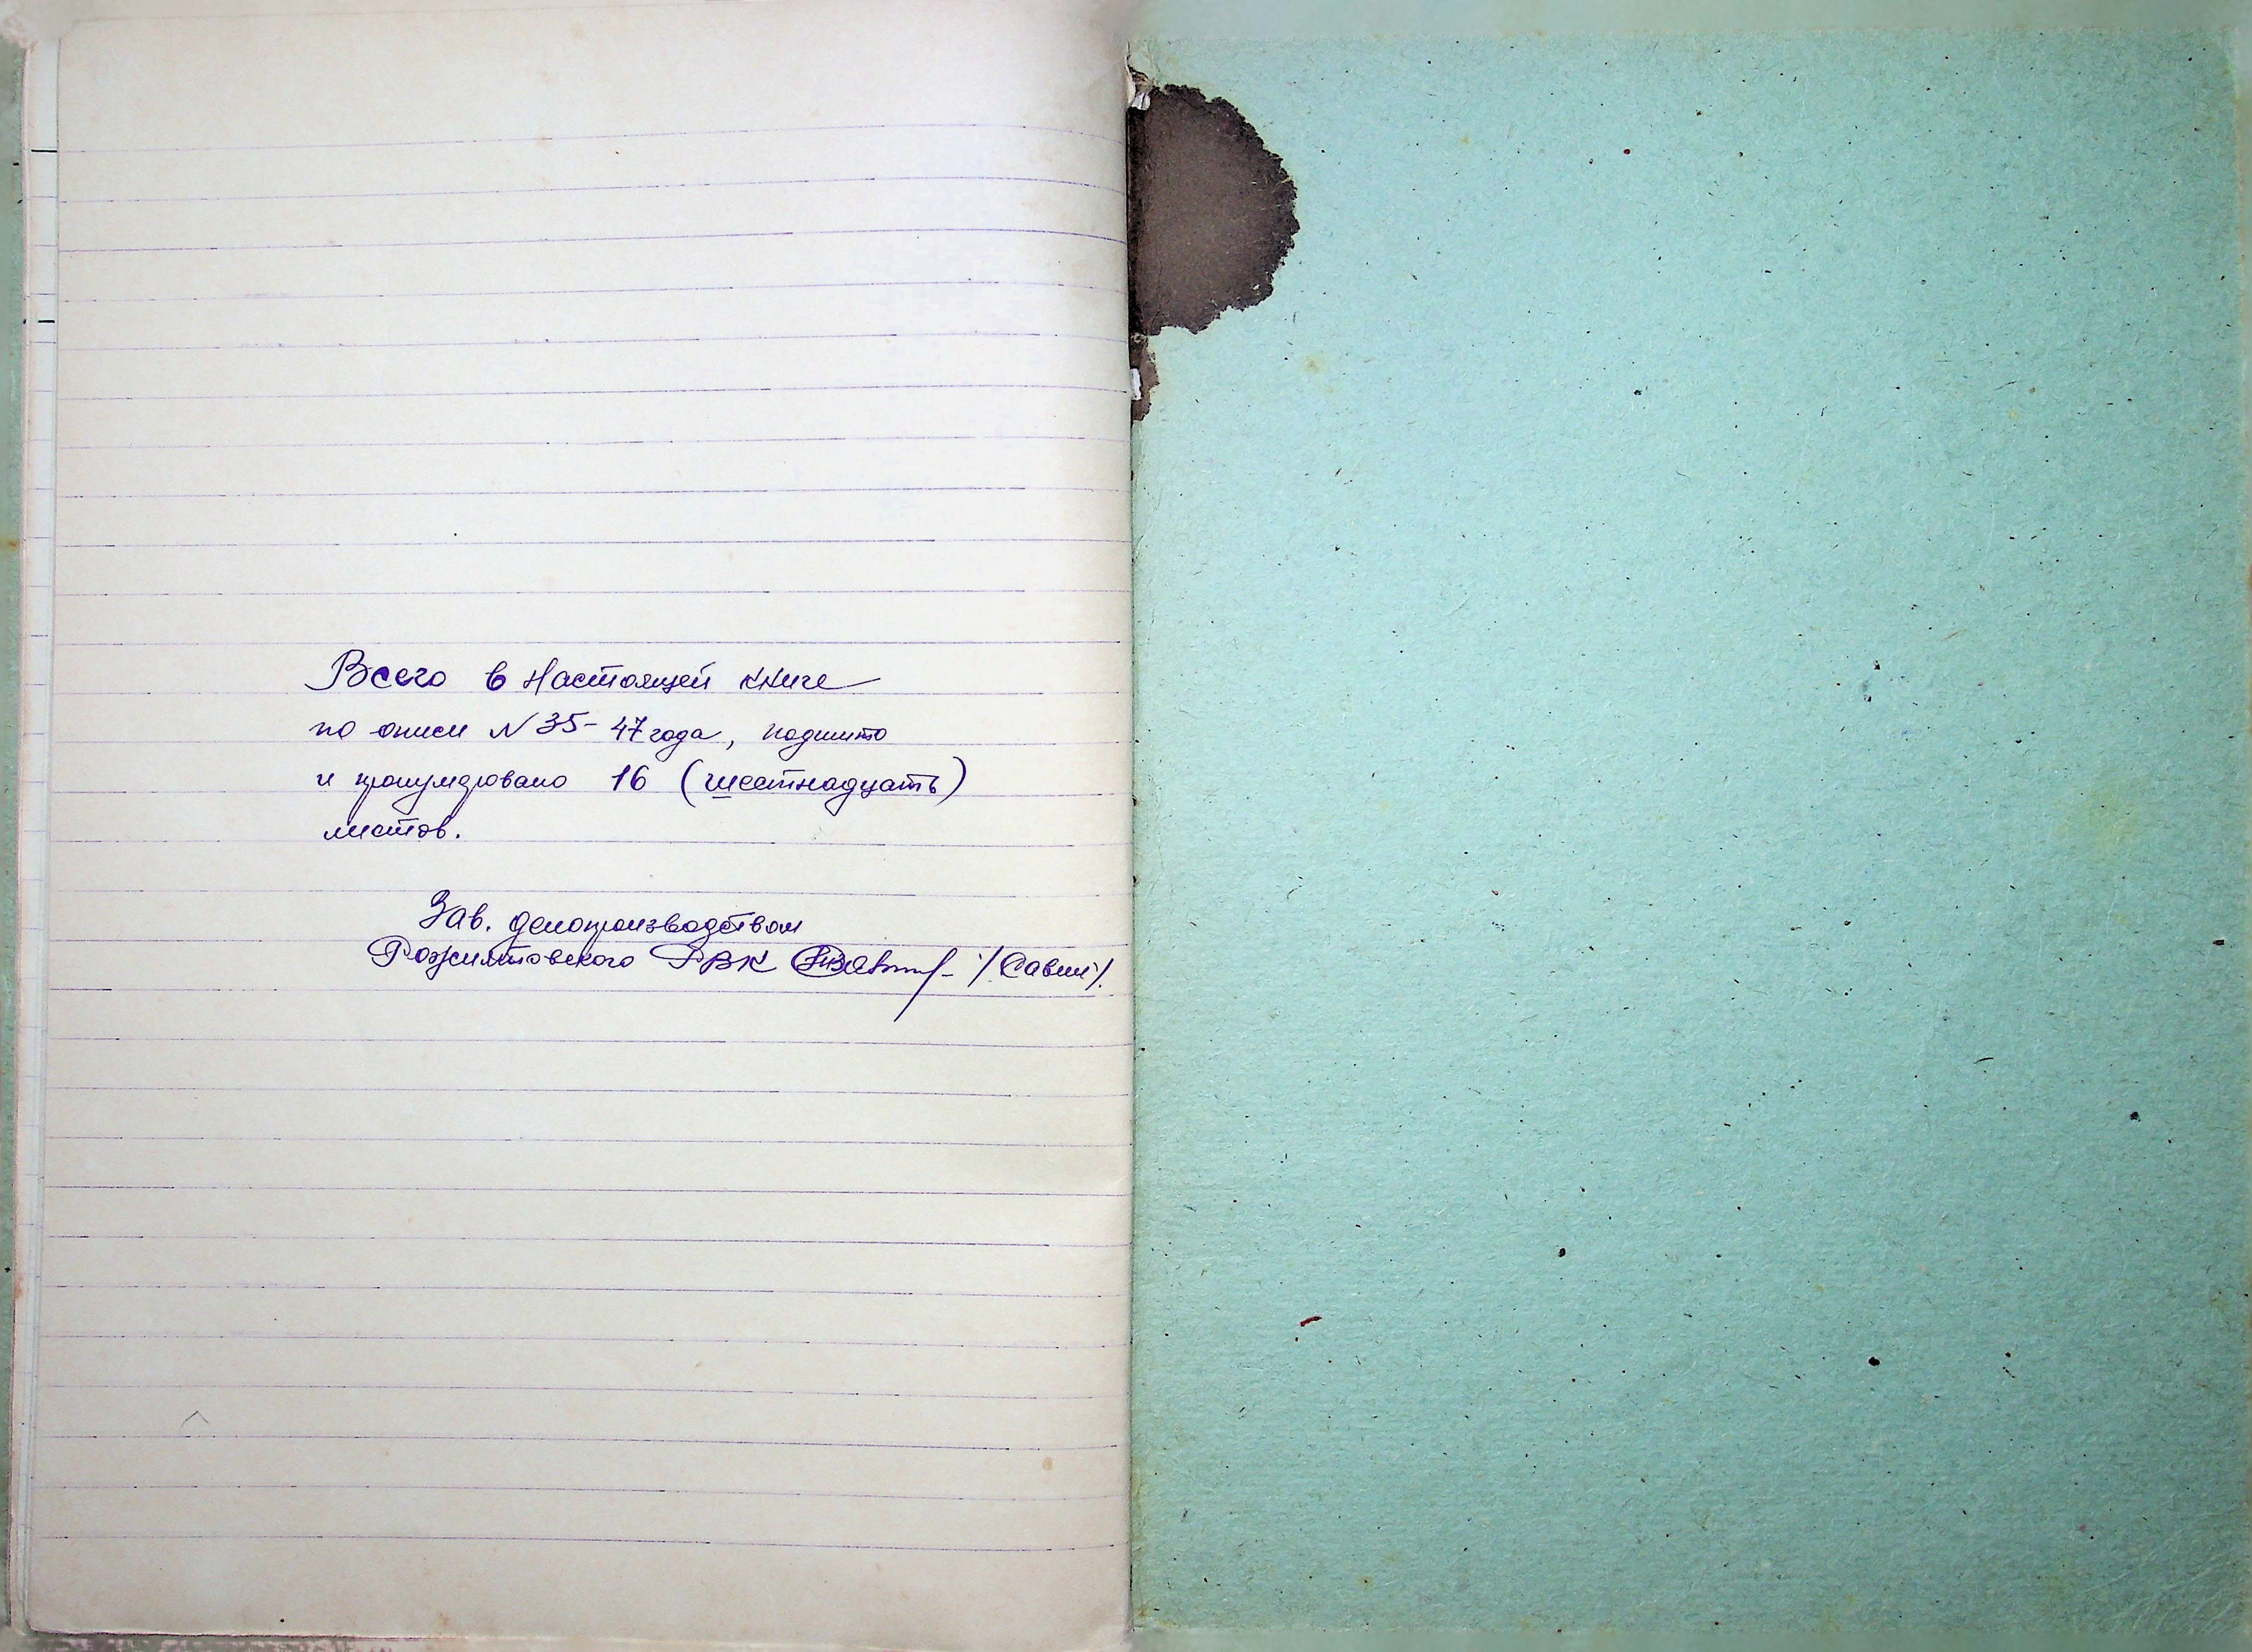 Всего в настоящей книге
по описи N 35-47 года, подшито
и пронумеровано 16 (шестнадцать)
листов.
Зав. делопроизводством
Рожнятовского РВК /Савин/.